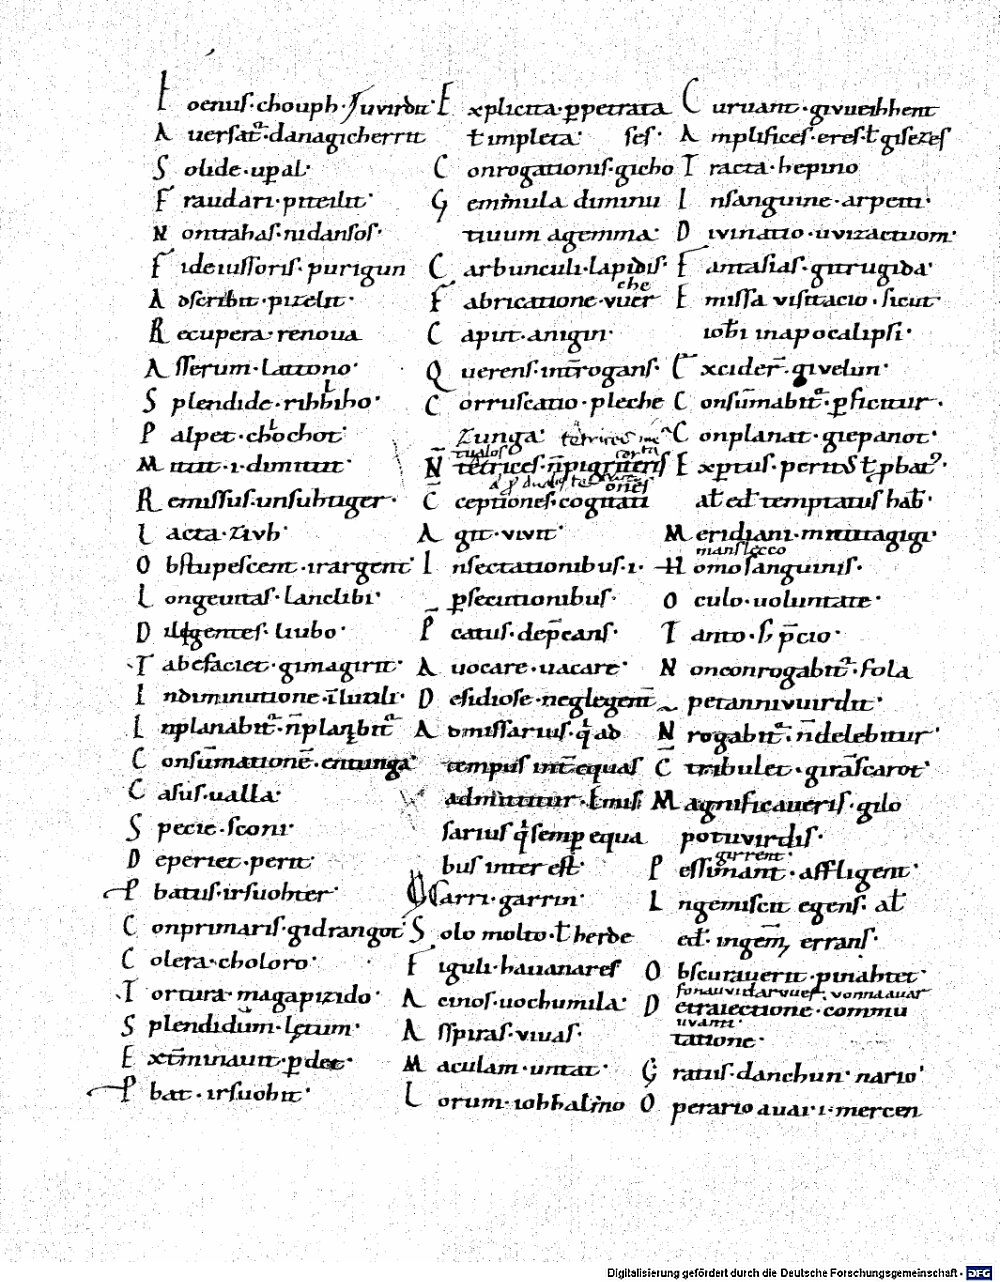 Foenus·chouph·
Auersat᷑·danagicherrit
Solide·upal·
Fraudari·piteilit·
Nontrahas·nidansos·
Fideiussoris·purigun
Adscribit·pizelit·
Recupera·renoua
Asserum·lattono·
Splendide·
Palpet·chochot·
Mitut·i·dimittit·
Remissus·unsubriger·
Lacta·zivh·
Obstupescent·irargent
Longeuitas·lanclibi·
Diligentes·liubo·
Tabefaciet·gimagirit·
Indiminutione·
Inplanabit᷑·
Consūmationē·entunga·
Casus·ualla·
Specie·sconi·
Deperiet·perit·
Pbatus·irsuohter·
Conprimaris·gidrangot
Colera·choloro·
Tortura·magapizido·
Splendidum·lętum·
Ext̄minauit·
Pbat·irsuohit·
suvirdit·Explicita·ꝑpetrata
ƚ impleta· ses·
Conrogationis·gicho
Geminula diminu
tiuum agemma·
Carbunculi·lapidis·
che
Fabricatione·vuer
Caput·anigin·
Querens·int̄rogans·
Corruscatio·pleche
zunga·
tetrices·
C̄ceptiones·cogitati
Agit·vivit·
Insectationibus·i·
ꝑsecutionibus·
P̄catus·dep̄cans·
Auocare·uacare·
Desidiose·neglegent̄
Admissarius·
tempus int̄ equas
admittitur·Emis
sarius semp equa
bus inter est·
Sarri·garrin·
Solo molto·ƚ herde
Figuli·hauanares
Acinos·uochumila·
Aspiras·vivas·
Maculam·untat·
Lorum·iohhalino
Curuant·givueihhent
Amplifices·eres·ƚ gisezes
Tracta·hepino
Insanguine·arpeiti·
Divinatio·uvizactuom·
Fantasias·gitrugida·
Emissa visitacio·sicut·
iob̄i inapocalipsi·
Excider̄·givelun·
Consūmabit᷑·ꝑficitur·
Conplanat·giepanot·
Expertus·
temptatus hab̄·
Meridiani·mittitagigi·
manslecco
Homo sanguinis·
Oculo·uoluntate·
Tanto·
Nonconrogabit᷑·fola
petannivuirdit·
Nrogabit᷑·n̄delebitur·
C̄tribulet·girascarot·
Magnificaueris·gilo
potuvirdis·
girrent·
Pessimant·affligent·
Ingemiscit egens·
ingem̄ errans·
Obscurauerit·pinahtet·
Detraiectione·commu
uvanti·
tatione·
Gratus·danchun·nario·
Operario auari·mercen
Digitalisierung gefördert durch die Deutsche Forschungsgemeinschaft - DFG